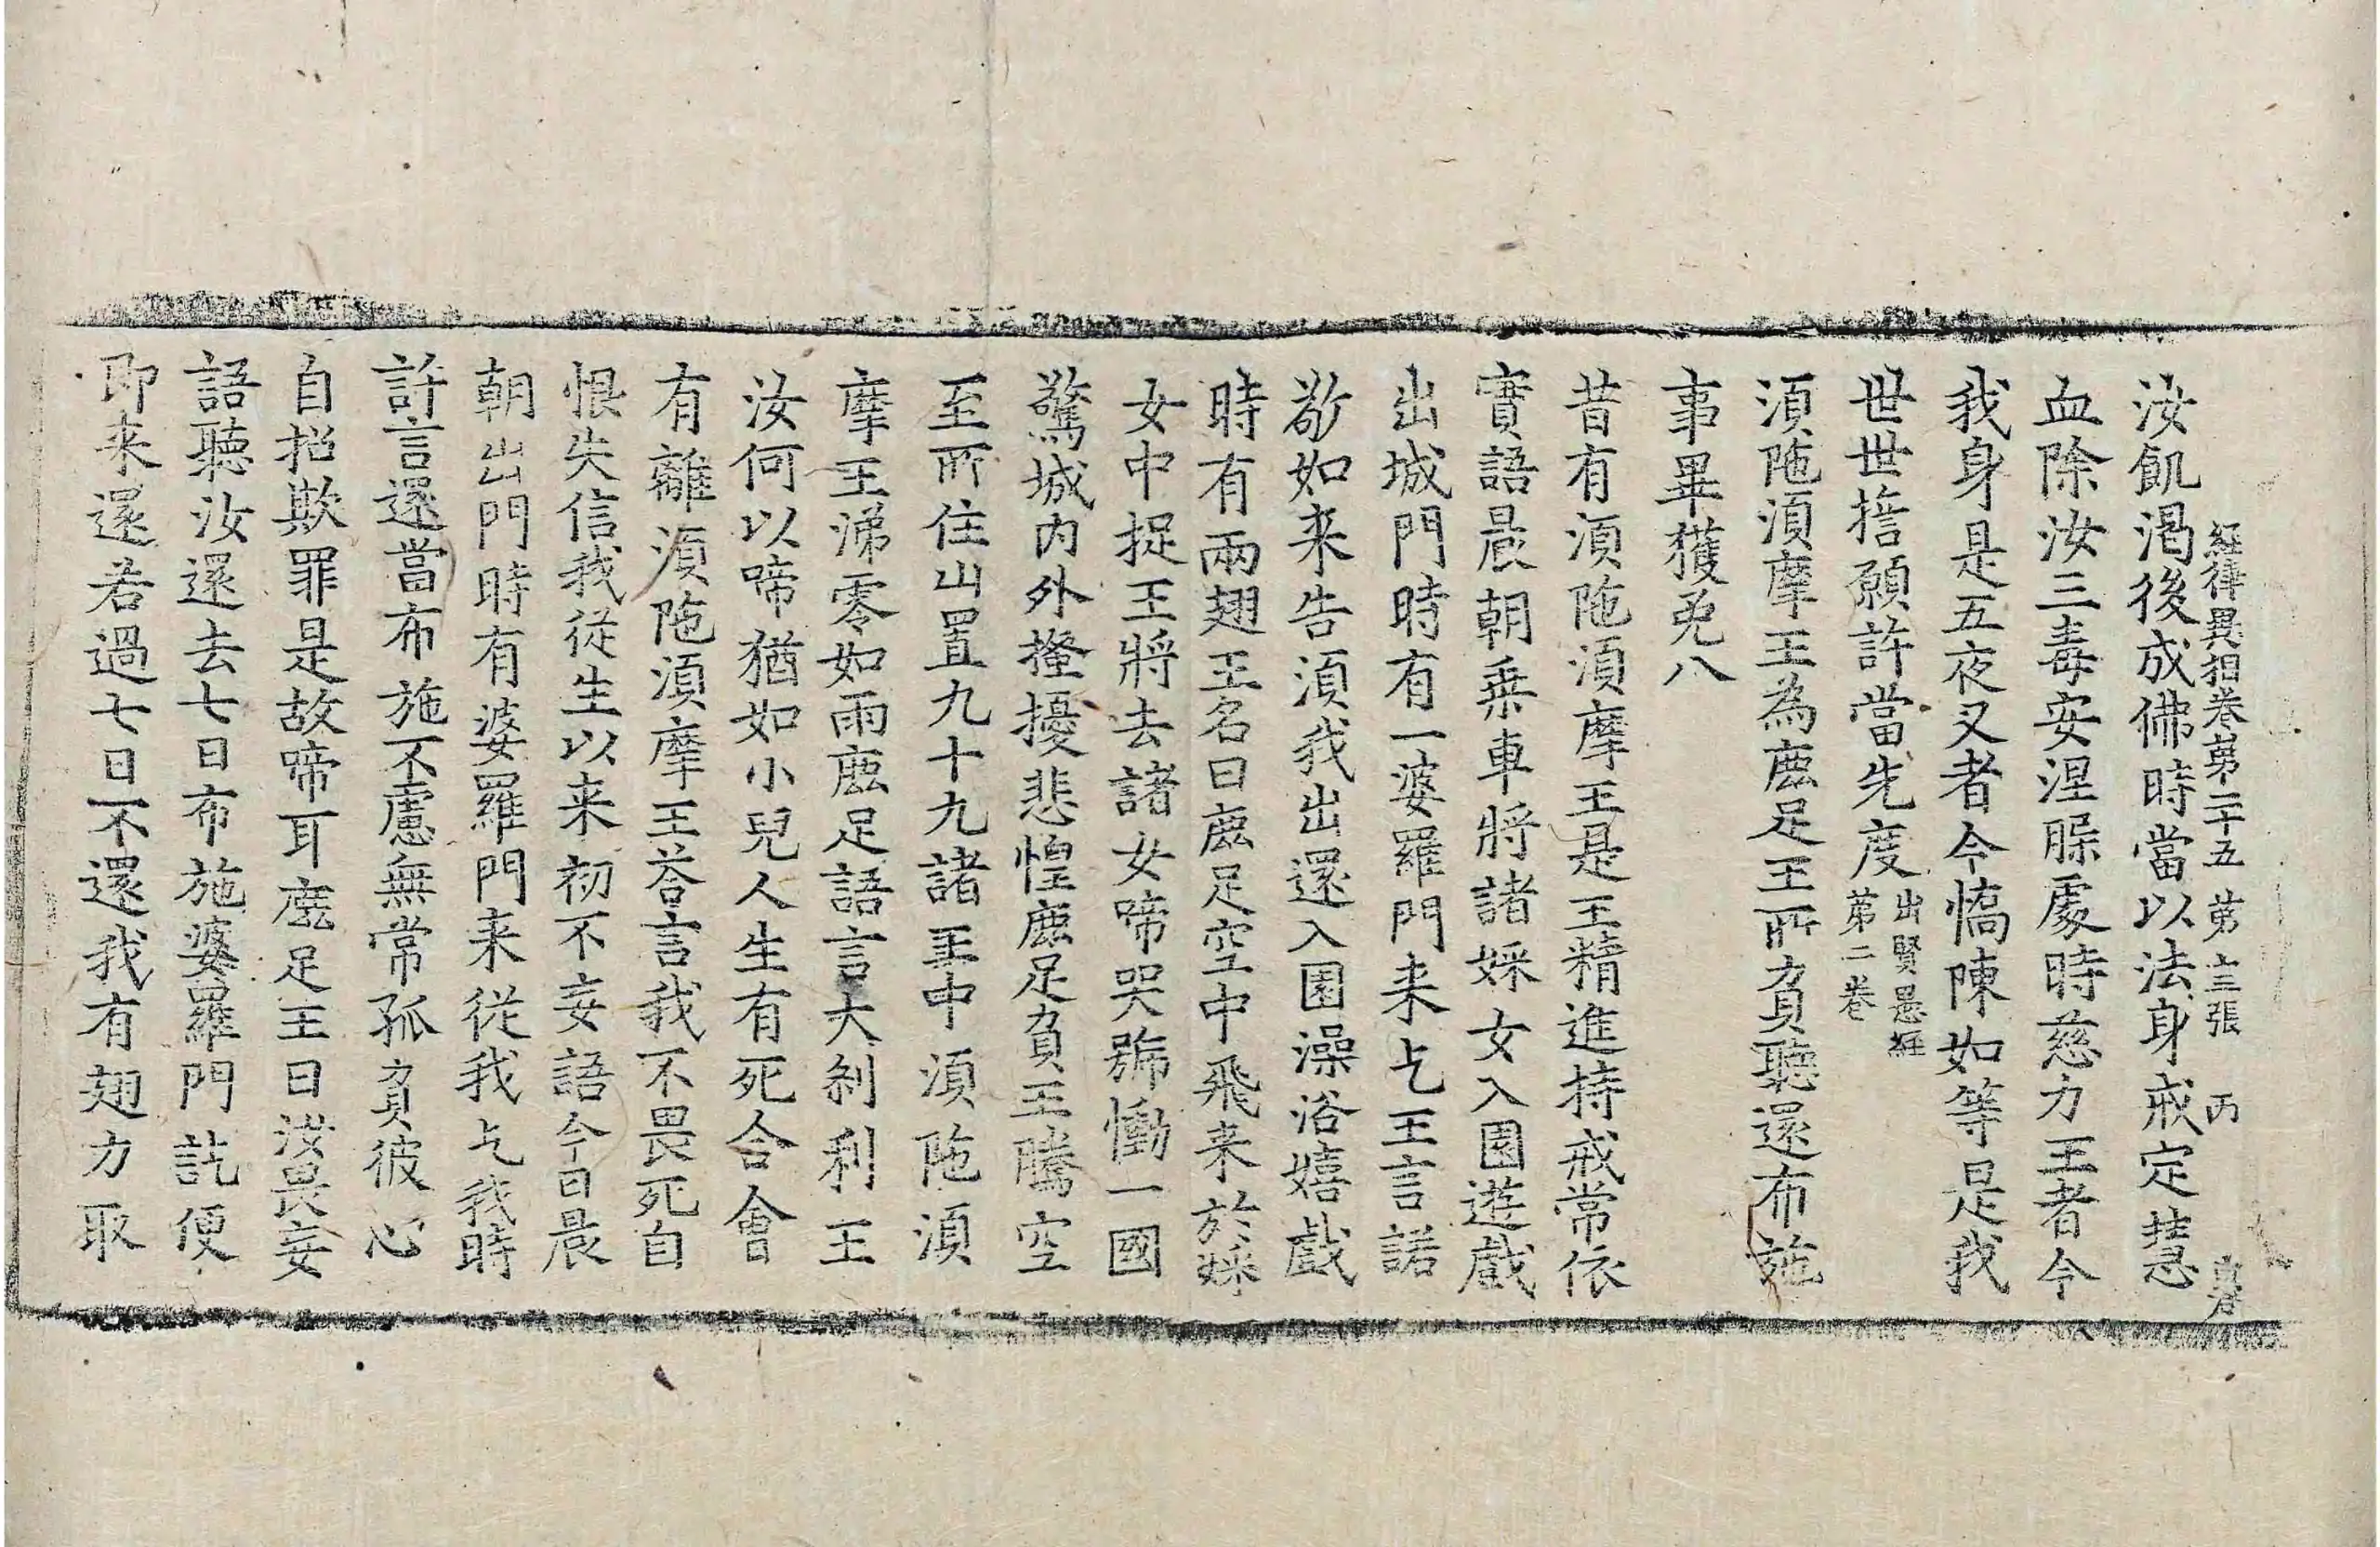 經律異相卷第二十五 第十三張 丙
汝飢渴後成佛時當以法身戒定慧
血除汝三毒安涅䐗處時慈力王者今
我身是五夜叉者今憍陳如等是我
世世擔願許當先度出賢愚經
第二卷
湏陁湏摩王為鹿足王所負聽還布施
事畢獲免八
昔有湏陁湏摩王是王精進持戒常依
實語晨朝乗車將諸婇女入園遊戲
出城門時有一婆羅門来乞王言諾
敬如来告湏我出還入園澡浴嬉戲
時有兩翅王名曰鹿足空中飛来於婇
女中捉王將去諸女啼哭號慟一國
驚城内外搔擾悲惶鹿足負王騰空
至所住山置九十九諸王中湏陁湏
摩王涕零如雨鹿足語言大剎利王
汝何以啼猶如小兒人生有死合會
有離湏陁湏摩王荅言我不畏死自
恨失信我從生以来初不妄語今日晨
朝出門時有婆羅門来從我乞我時
許言還當布施不慮無常孤負彼心
自招欺罪是故啼耳鹿足王曰汝畏妄
語聽汝還去七日布施婆羅門訖便
即来還若過七日不還我有翅力取